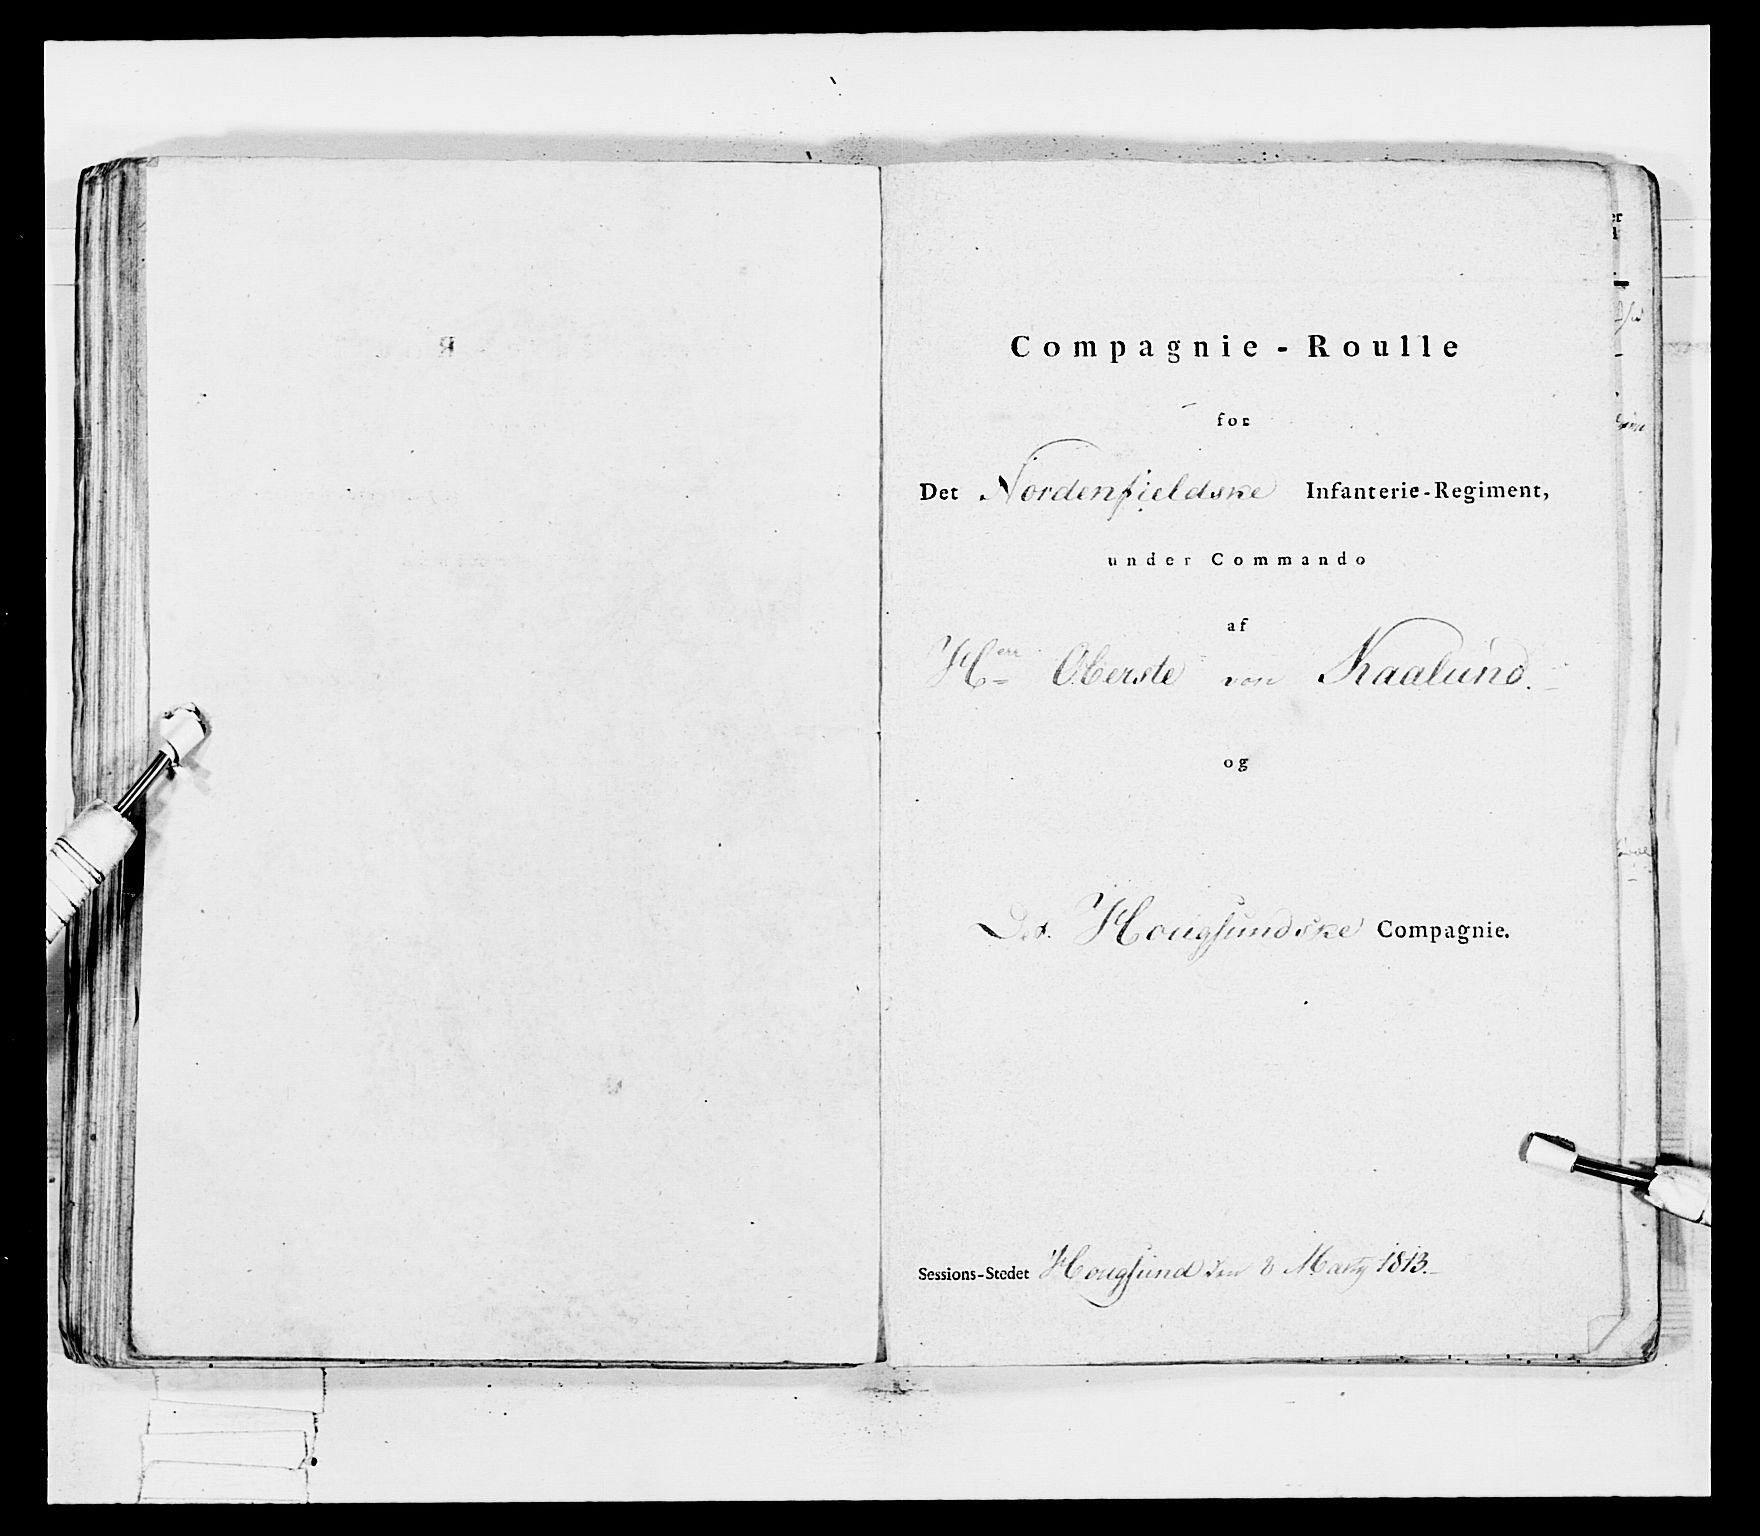 Compagnie-Roulle
for
Det Nordenfieldske Infanterie-Regiment,
under Commando
af
Herr Oberste von Kaalund.
og
Det Hougsundske Compagnie.
Sessions-Stedet Hougsund den 8 Marty 1813.